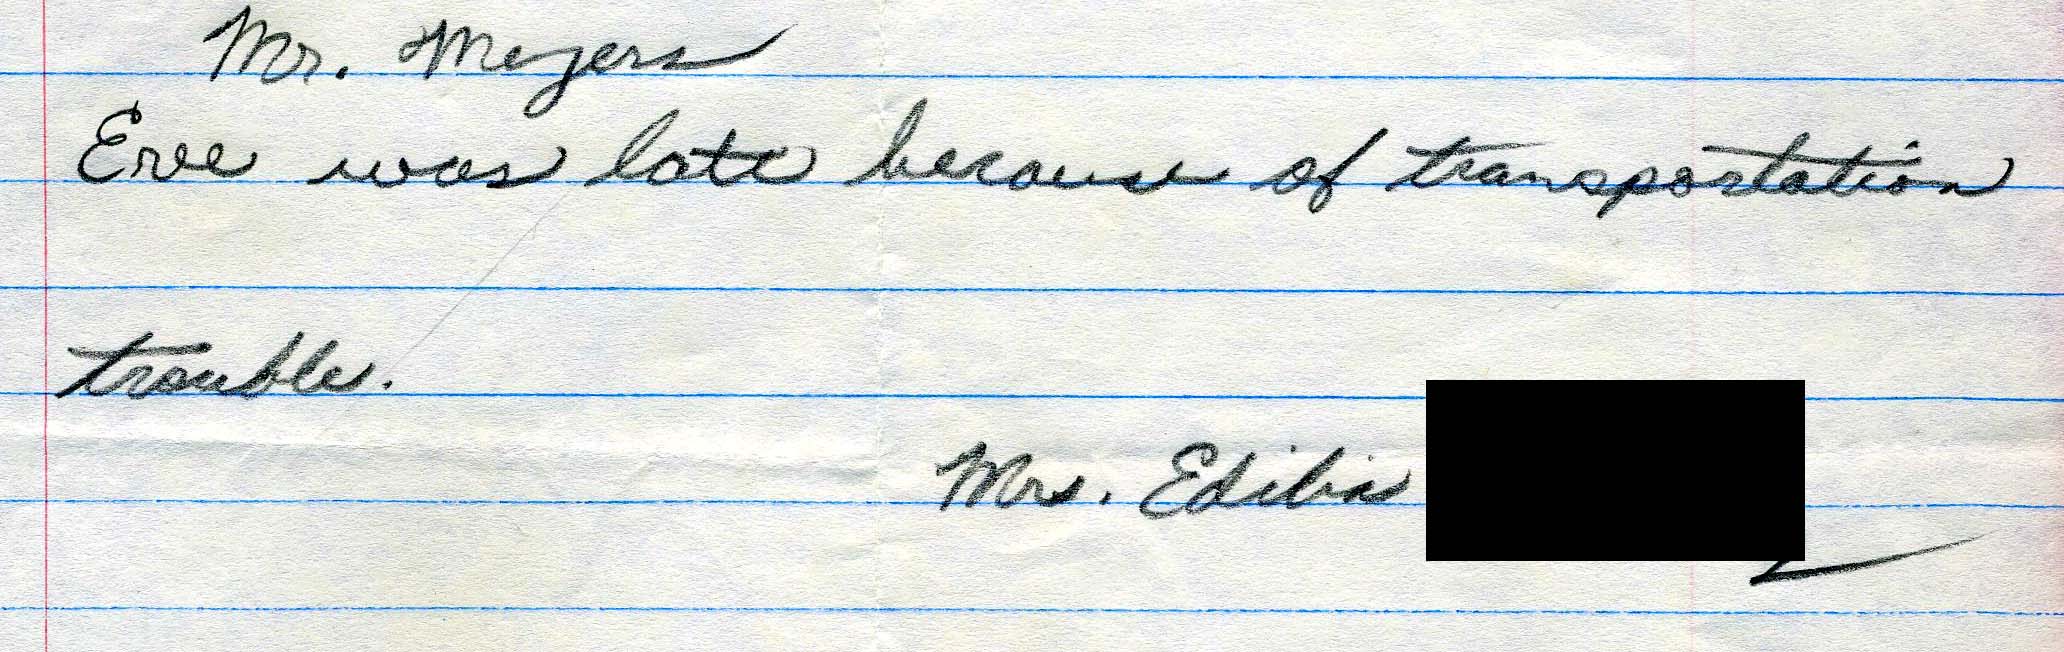 Mr. Meyers
Eve was late because of transportation
trouble.
Mrs. Edibia